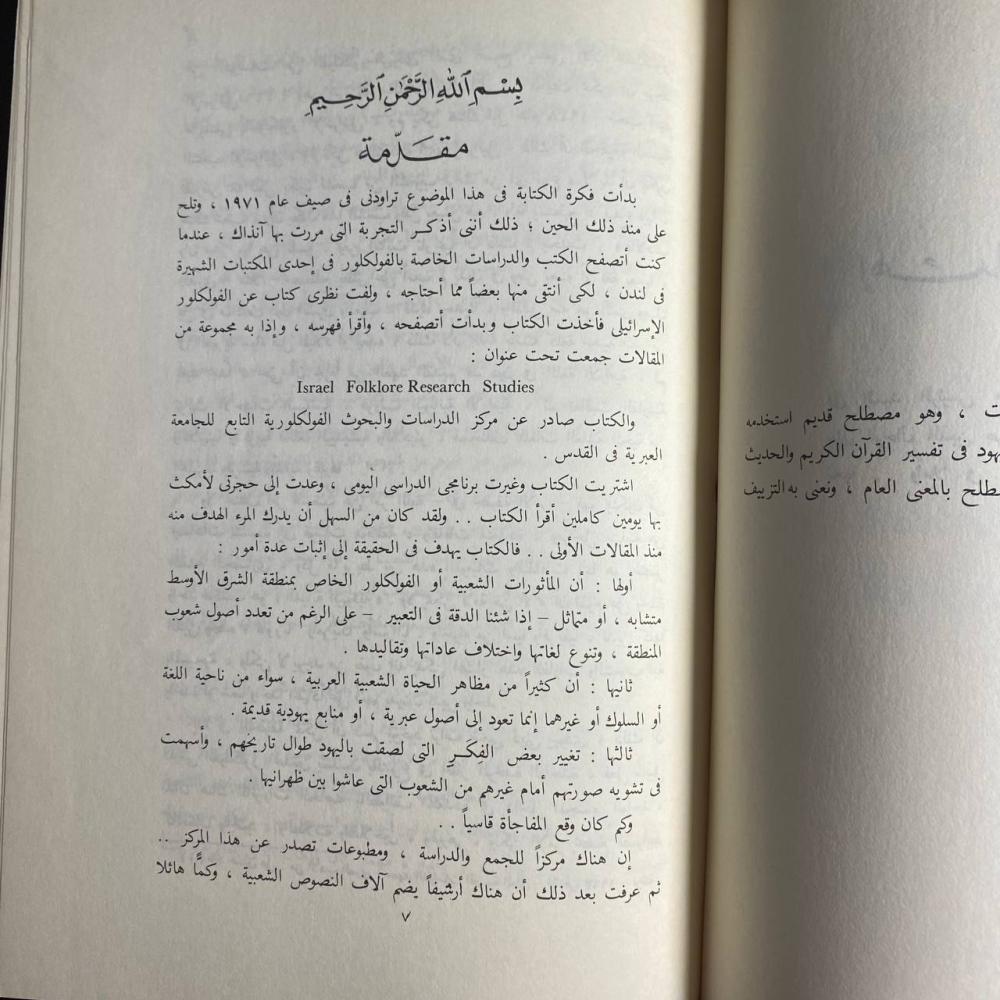 بِسْمِ ٱللهِ ٱلرَّحْمٰنِ ٱلرَّحِيمِ
مقدّمة
بدأت فكرة الكتابة فى هذا الموضوع تراودنى فى صيف عام ١٩٧١ ، وتلح
على منذ ذلك الحين ؛ ذلك أننى أذكر التجربة التى مررت بها آنذاك ، عندما
كنت أتصفح الكتب والدراسات الخاصة بالفولكلور فى إحدى المكتبات الشهيرة
فى لندن ، لكى أنتقى منها بعضاً مما أحتاجه ، ولفت نظرى كتاب عن الفولكلور
الإسرائيلى فأخذت الكتاب وبدأت أتصفحه ، وأقرأ فهرسه ، وإذا به مجموعة من
المقالات جمعت تحت عنوان :
Israel Folklore Research Studies
والكتاب صادر عن مركز الدراسات والبحوث الفولكلورية التابع للجامعة
العبرية فى القدس .
اشتريت الكتاب وغيرت برنامجى الدراسى اليومى ، وعدت إلى حجرتى لأمكث
بها يومين كاملين أقرأ الكتاب . . ولقد كان من السهل أن يدرك المرء الهدف منه
منذ المقالات الأولى . . فالكتاب يهدف فى الحقيقة إلى إثبات عدة أمور :
أولها : أن المأثورات الشعبية أو الفولكلور الخاص بمنطقة الشرق الأوسط
متشابه ، أو متماثل – إذا شئنا الدقة فى التعبير – على الرغم من تعدد أصول شعوب
المنطقة ، وتنوع لغاتها واختلاف عاداتها وتقاليدها .
ثانيها : أن كثيراً من مظاهر الحياة الشعبية العربية ، سواء من ناحية اللغة
أو السلوك أو غيرهما إنما تعود إلى أصول عبرية ، أو منابع يهودية قديمة .
ثالثها : تغيير بعض الفِكَرِ التى لصقت باليهود طوال تاريخهم ، وأسهمت
فى تشويه صورتهم أمام غيرهم من الشعوب التى عاشوا بين ظهرانيها .
وكم كان وقع المفاجأة قاسياً . .
إن هناك مركزاً للجمع والدراسة ، ومطبوعات تصدر عن هذا المركز . .
ثم عرفت بعد ذلك أن هناك أرشيفاً يضم آلاف النصوص الشعبية ، وكمًّا هائلا
٧
ت ، وهو مصطلح قديم استخدمه
هود فى تفسير القرآن الكريم والحديث
طلح بالمعنى العام ، ونعنى به التزييف